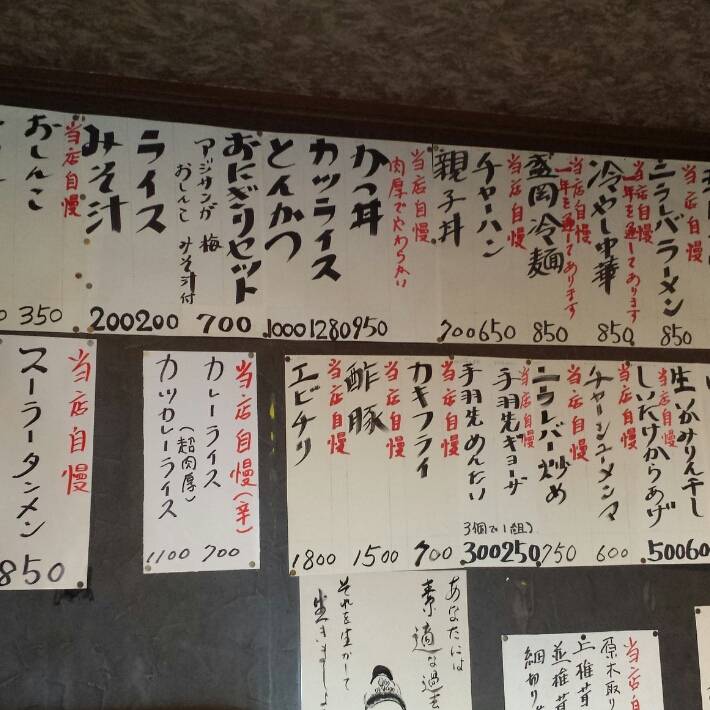 ニラレバラーメン
850
当店自慢
一年を通してあります
冷やし中華
850
当店自慢
一年を通してあります
盛岡冷麺
850
当店自慢
チャーハン
650
親子丼
700
当店自慢
肉厚でやわらかい
かつ丼
950
カツライス
1280
とんかつ
1000
おにぎりセット
アジサンが 梅
おしんこ みそ汁付
700
ライス
200
みそ汁
200
当店自慢
おしんこ
350
生いかみりん干し
600
当店自慢
しいたけからあげ
500
当店自慢
チャーシューメンマ
600
当店自慢
ニラレバー炒め
750
当店自慢
手羽先ギョーザ
250
手羽先めんたい
300
3個で1組
当店自慢
カキフライ
700
当店自慢
酢豚
1500
当店自慢
エビチリ
1800
当店自慢(辛)
カレーライス
700
(超肉厚)
カツカレーライス
1100
当店自慢
スーラータンメン
850
あなたには
素適な過去
それを生かして
生きましょ
当店自慢
原木取り
上椎茸
並椎茸
細切り